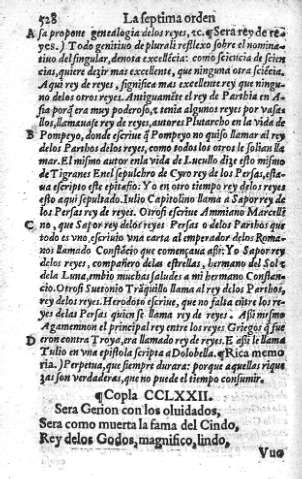 528 La septima orden
A sa propone genealogia delos reyes, &c. ¶ Sera rey de re-
yes.) Todo genitiuo de plurali reflexo sobre el nomina-
tiuo del singular, denota excellēcia: como sciencia de scien
cias, quiere dezir mas excellente, que ninguna otra sciēcia.
Aqui rey de reyes, significa mas excellente rey que ningu-
no delos otros reyes. Antiguamēte el rey de Parthia en A-
sia porq̃ era muy poderoso, et tenia algunos reyes por vasa-
llos, llamauase rey de reyes, autores Plutarcho en la vida de
B Pompeyo, donde escriue q̃ Pompeyo no quiso llamar al rey
delos Parthos rey delos reyes, como todos los otros le solian lla
mar. El mismo autor enla vida de Lucullo dize esto mismo
de Tigranes Enel sepulchro de Cyro rey de los Persas, esta-
ua escripto este epitafio: Yo en otro tiempo rey delos reyes
esto aqui sepultado. Iulio Capitolino llama a Sapor rey de
los Persas rey de reyes. Otrosi escriue Ammiano Marcelli
C no, que Sapor rey delos reyes Persas o delos Parthos que
todo es vno, escriuio vna carta al emperador delos Roma-
nos llamado Constācio que començaua assi: Yo Sapor rey
delos reyes, compañero delas estrellas, hermano del Sol &
dela Luna, embio muchas saludes a mi hermano Constan-
cio. Otrosi Suetonio Trāquillo llama al rey delos Parthos,
rey delos reyes. Herodoto escriue, que no falta entre los re-
yes delas Persas quien se llama rey de reyes. Assi mismo
Agamemnon el principal rey entre los reyes Griegos q̃ fue
D eron contra Troya, era llamado rey de reyes. E assi le llama
Tulio en vna epistola scripta a Dolobella. ¶ Rica memo
ria.) Perpetua, que siempre durara: porque aquellas rique
zas son verdaderas, que no puede el tiempo consumir.
¶ Copla CCLXXII.
Sera Gerion con los oluidados,
Sera como muerta la fama del Cindo,
Rey delos Godos, magnifico, lindo,
Vno